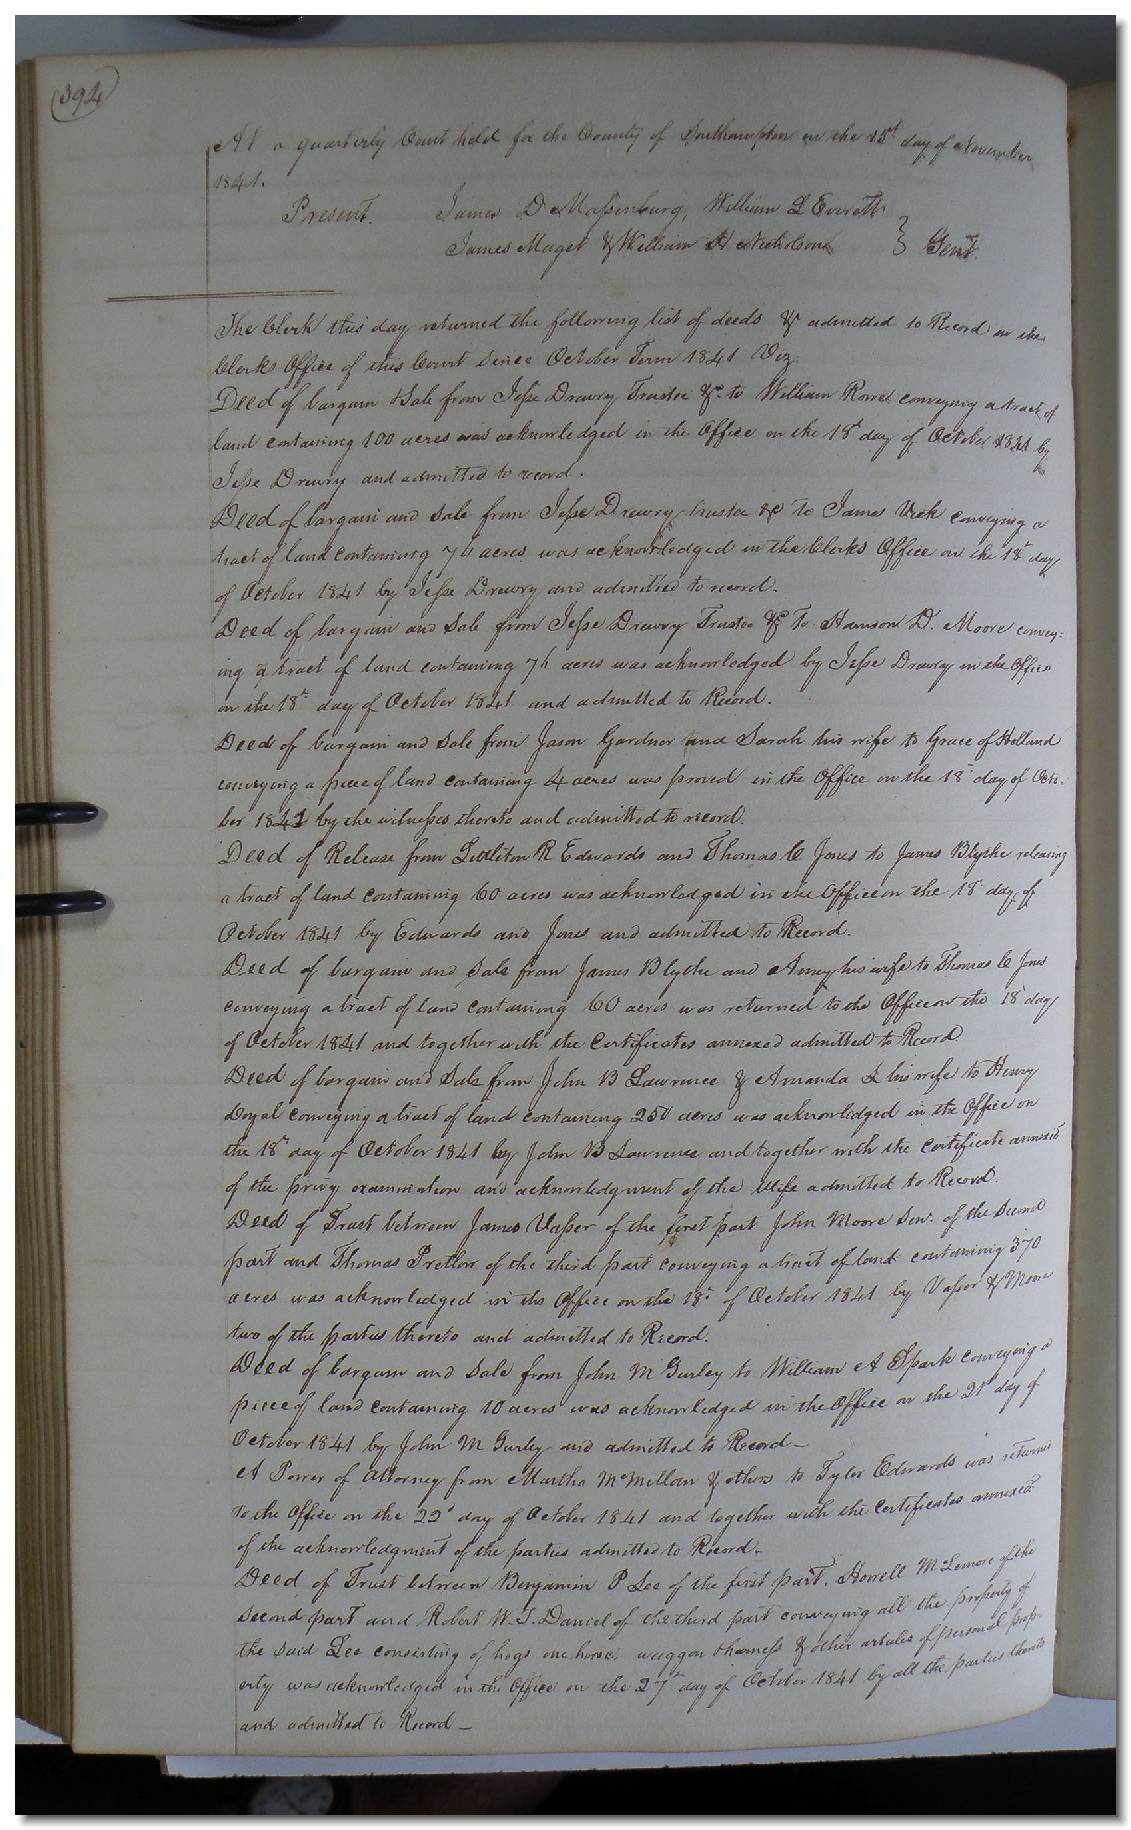 394
At a quarterly Court held for the County of Southampton on the 15t day of November
1841.
Present. James D Massenburg, William L Everett
James Maget & William H Nicholson } Gent.
The Clerk this day returned the following list of deeds & admitted to Record in the
Clerks Office of this Court since October Term 1841 Viz.
Deed of bargain & Sale from Jesse Drewry Trustee &c. to William conveying a tract of
land containing 100 acres was acknowledged in the Office on the 18t day of October 1841 by
Jesse Drewry and admitted to record.
Deed of bargain and Sale from Jesse Drewry trustee &c to James Vick conveying a
tract of land containing acres was acknowledged in the Clerks Office on the 18t day
of October 1841 by Jesse Drewry and admitted to record.
Deed of bargain and Sale from Jesse Drewry Trustee &c To Hanson D. Moore convey=
ing a tract of land containing acres was acknowledged by Jesse Drewry in the Office
on the 18t day of October 1841 and admitted to Record.
Deed of bargain and Sale from Jason Gardner and Sarah his wife to Grace of Holland
conveying a piece of land containing 4 acres was proved in the Office on the 18t day of Octo-
ber 1841 by the witnesses thereto and admitted to record.
Deed of Release from Littleton R Edwards and Thomas C Jones to James Blythe releasing
a tract of land containing 60 acres was acknowledged in the Office on the 18t day of
October 1841 by Edwards and Jones and admitted to Record.
Deed of bargain and Sale from James Blythe and Amey his wife to Thomas C Jones
conveying a tract of land containing 60 acres was returned to the Office on the 18t day
of October 1841 and together with the Certificates annexed admitted to Record
Deed of bargain and Sale from John B Lawrence & Amanda L his wife to Henry
Doyal conveying a tract of land containing 250 acres was acknowledged in the Office on
the 18t day of October 1841 by John B Lawrence and together with the Certificate annexed
of the privy examination and acknowledgment of the Wife admitted to Record.
Deed of Trust between James Vasser of the first part John Moore Senr. of the second
part and Thomas Pretlow of the third part conveying a tract of land containing 370
acres was acknowledged in the Office on the 18t of October 1841 by Vasser & Moore
two of the parties thereto and admitted to Record.
Deed of bargain and Sale from John M Gurley to William A Spark conveying a
piece of land containing 10 acres was acknowledged in the Office on the 21t day of
October 1841 by John M Gurley and admitted to Record -
A Power of Attorney from Martha McMillan & others to Tyler Edwards was returned
to the Office on the 22d day of October 1841 and together with the Certificates annexed
of the acknowledgment of the parties admitted to Record.
Deed of Trust between Benjamin P Lee of the first part. Howell M Lemore of the
second part and Robert W. J. Daniel of the third part conveying all the property of
the said Lee consisting of hogs one horse, waggon & harness & other articles of personal prop-
erty was acknowledged in the Office on the 27t day of October 1841 by all the parties thereto
and admitted to Record -